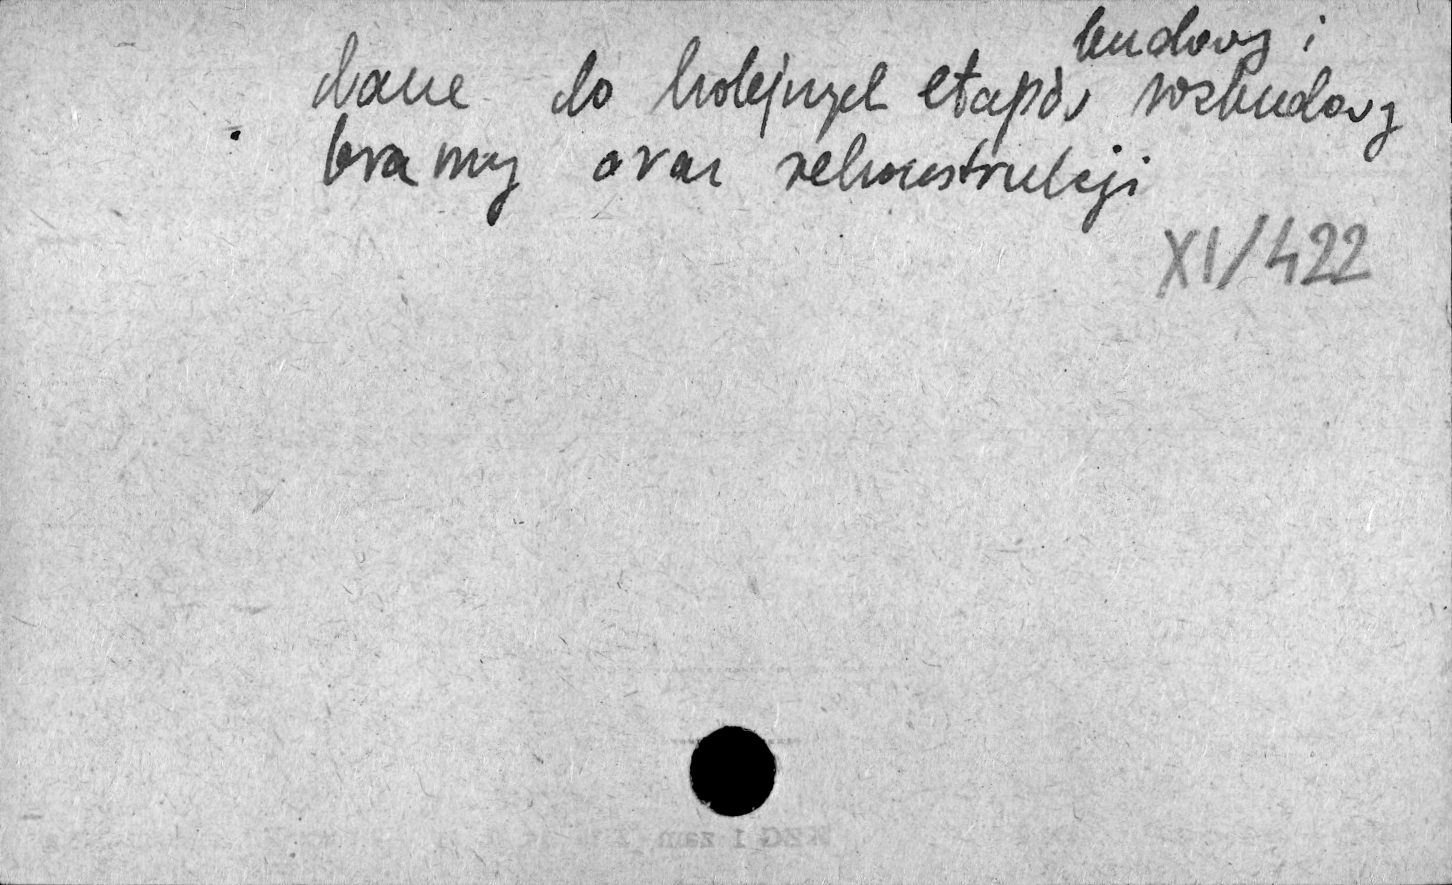 budowy i
dane do kolejnych etapów rozbudowy
bramy oraz rekonstrukcji
XI/422